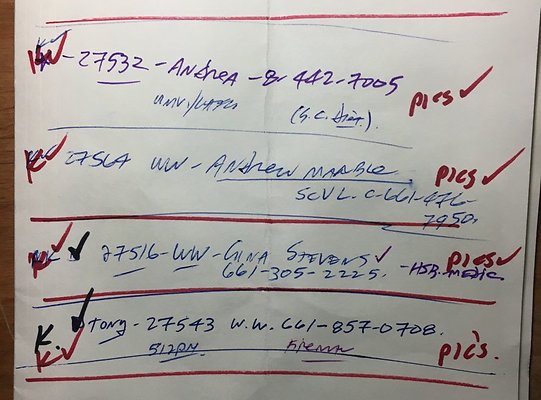 K - 27532 - Andrea - 8-442-7005
pics ✓
(S.C. Dist.).
K 27564 WW - Andrew Marble pics ✓
SCVL. C-661-476-
7950.
27516 - WW - Gina Stevens ✓ pics ✓
661-305-2225. - HSB. medic
K. ✓ Tony - 27543 W.W. 661-857-0708.
K ✓ pics.